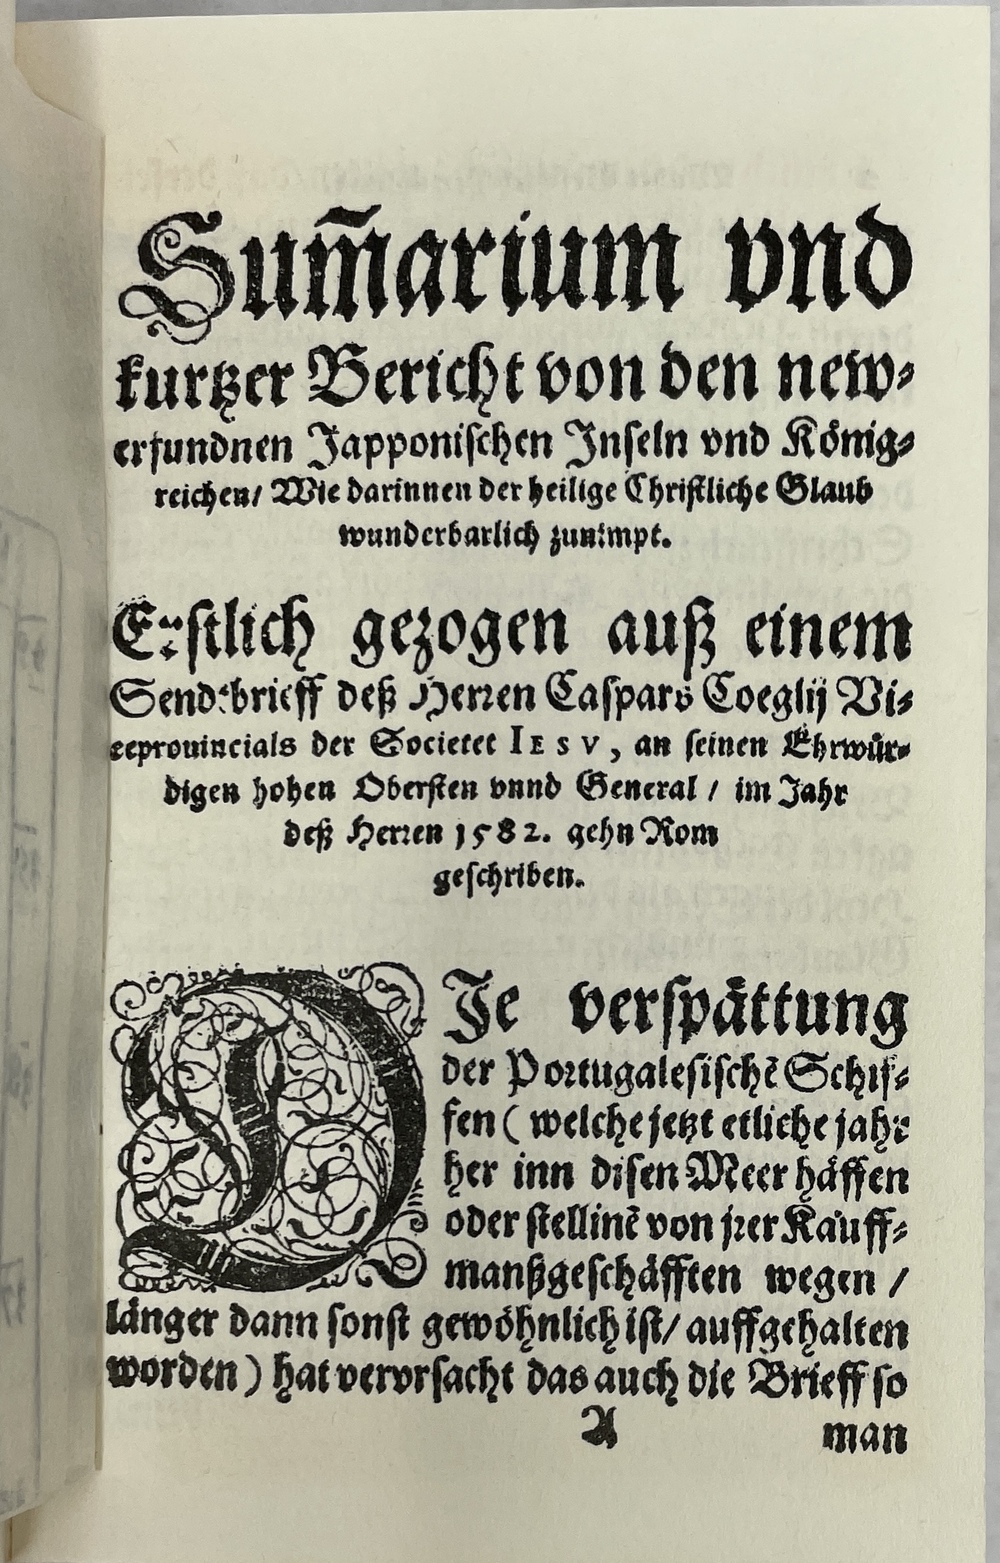 Sum̃arium vnd
kurtzer Bericht von den new⸗
erfundnen Japponischen Inseln vnd König⸗
reichen/ Wie darinnen der heilige Christliche Glaub
wunderbarlich zunimpt.
Erstlich gezogen auß einem
Sendtbrieff deß Herren Caspars Coeglij Vi⸗
ceprouincials der Societet IESV, an seinen Ehrwür⸗
digen hohen Obersten vnnd General / im Jahr
deß Herren 1582. gehn Rom
geschriben.
DJe verspättung
der Portugalesischẽ Schif⸗
fen ( welche jetzt etliche jahr
her inn disen Meer häffen
oder stellinẽ von jrer Kauff⸗
manßgeschäfften wegen /
länger dann sonst gewöhnlich ist/ auffgehalten
worden ) hat vervrsacht das auch die Brieff so
A man